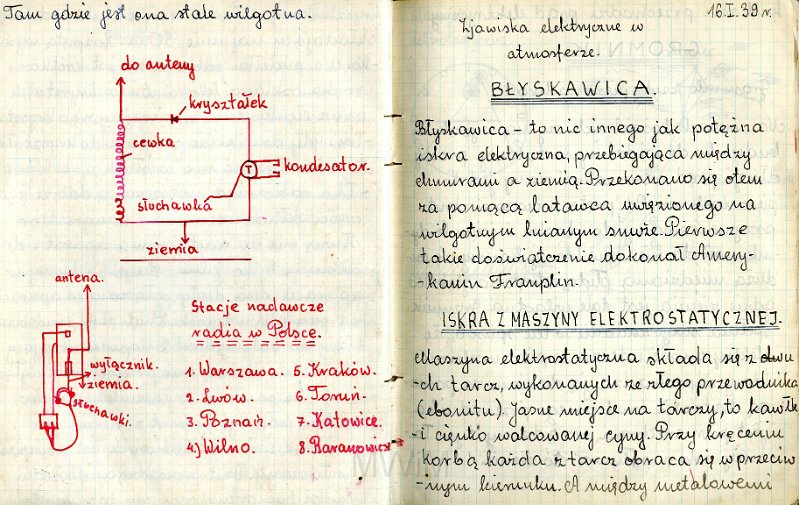 Tam gdzie jest ona stale wilgotna.
do anteny
kryształek
cewka
T
kondesator.
słuchawka
ziemia
antena.
wyłącznik.
ziemia.
słuchawki.
Stacje nadawcze
radia w Polsce.
1. Warszawa. 5. Kraków.
2. Lwów. 6. Toruń.
3. Poznań. 7. Katowice.
4.) Wilno. 8. Baranowicze
16.I.39 r.
Zjawiska elektryczne w
atmosferze.
BŁYSKAWICA.
Błyskawica - to nic innego jak potężna
iskra elektryczna, przebiegająca między
chmurami a ziemią. Przekonano się o tem
za pomocą latawca uwięzionego na
wilgotnym lnianym snurze. Pierwsze
takie doświatczenie dokonał Amery-
-kanin Franplin.
ISKRA Z MASZYNY ELEKTROSTATYCZNEJ.
Maszyna elektrostatyczna składa się z dwu
-ch tarcz, wykonanych ze złego przewodnika
(ebonitu). Jasne miejsce na tarczy, to kawałk
-i cięnko walcowanej cyny. Przy kręceniu
korbą każda z tarcz obraca się w przeciw
-nym kierunku. A między metalowemi